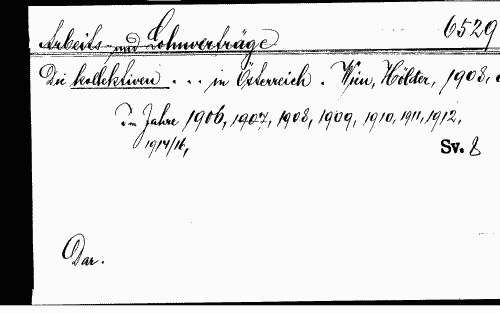 6529
Arbeits- und Lohnverträge
Die kollektiven . . . in Österreich. Wien, Hölder, 1908,
im Jahre 1906, 1907, 1908, 1909, 1910, 1911, 1912,
1914/16,
Sv. 8
Dar.